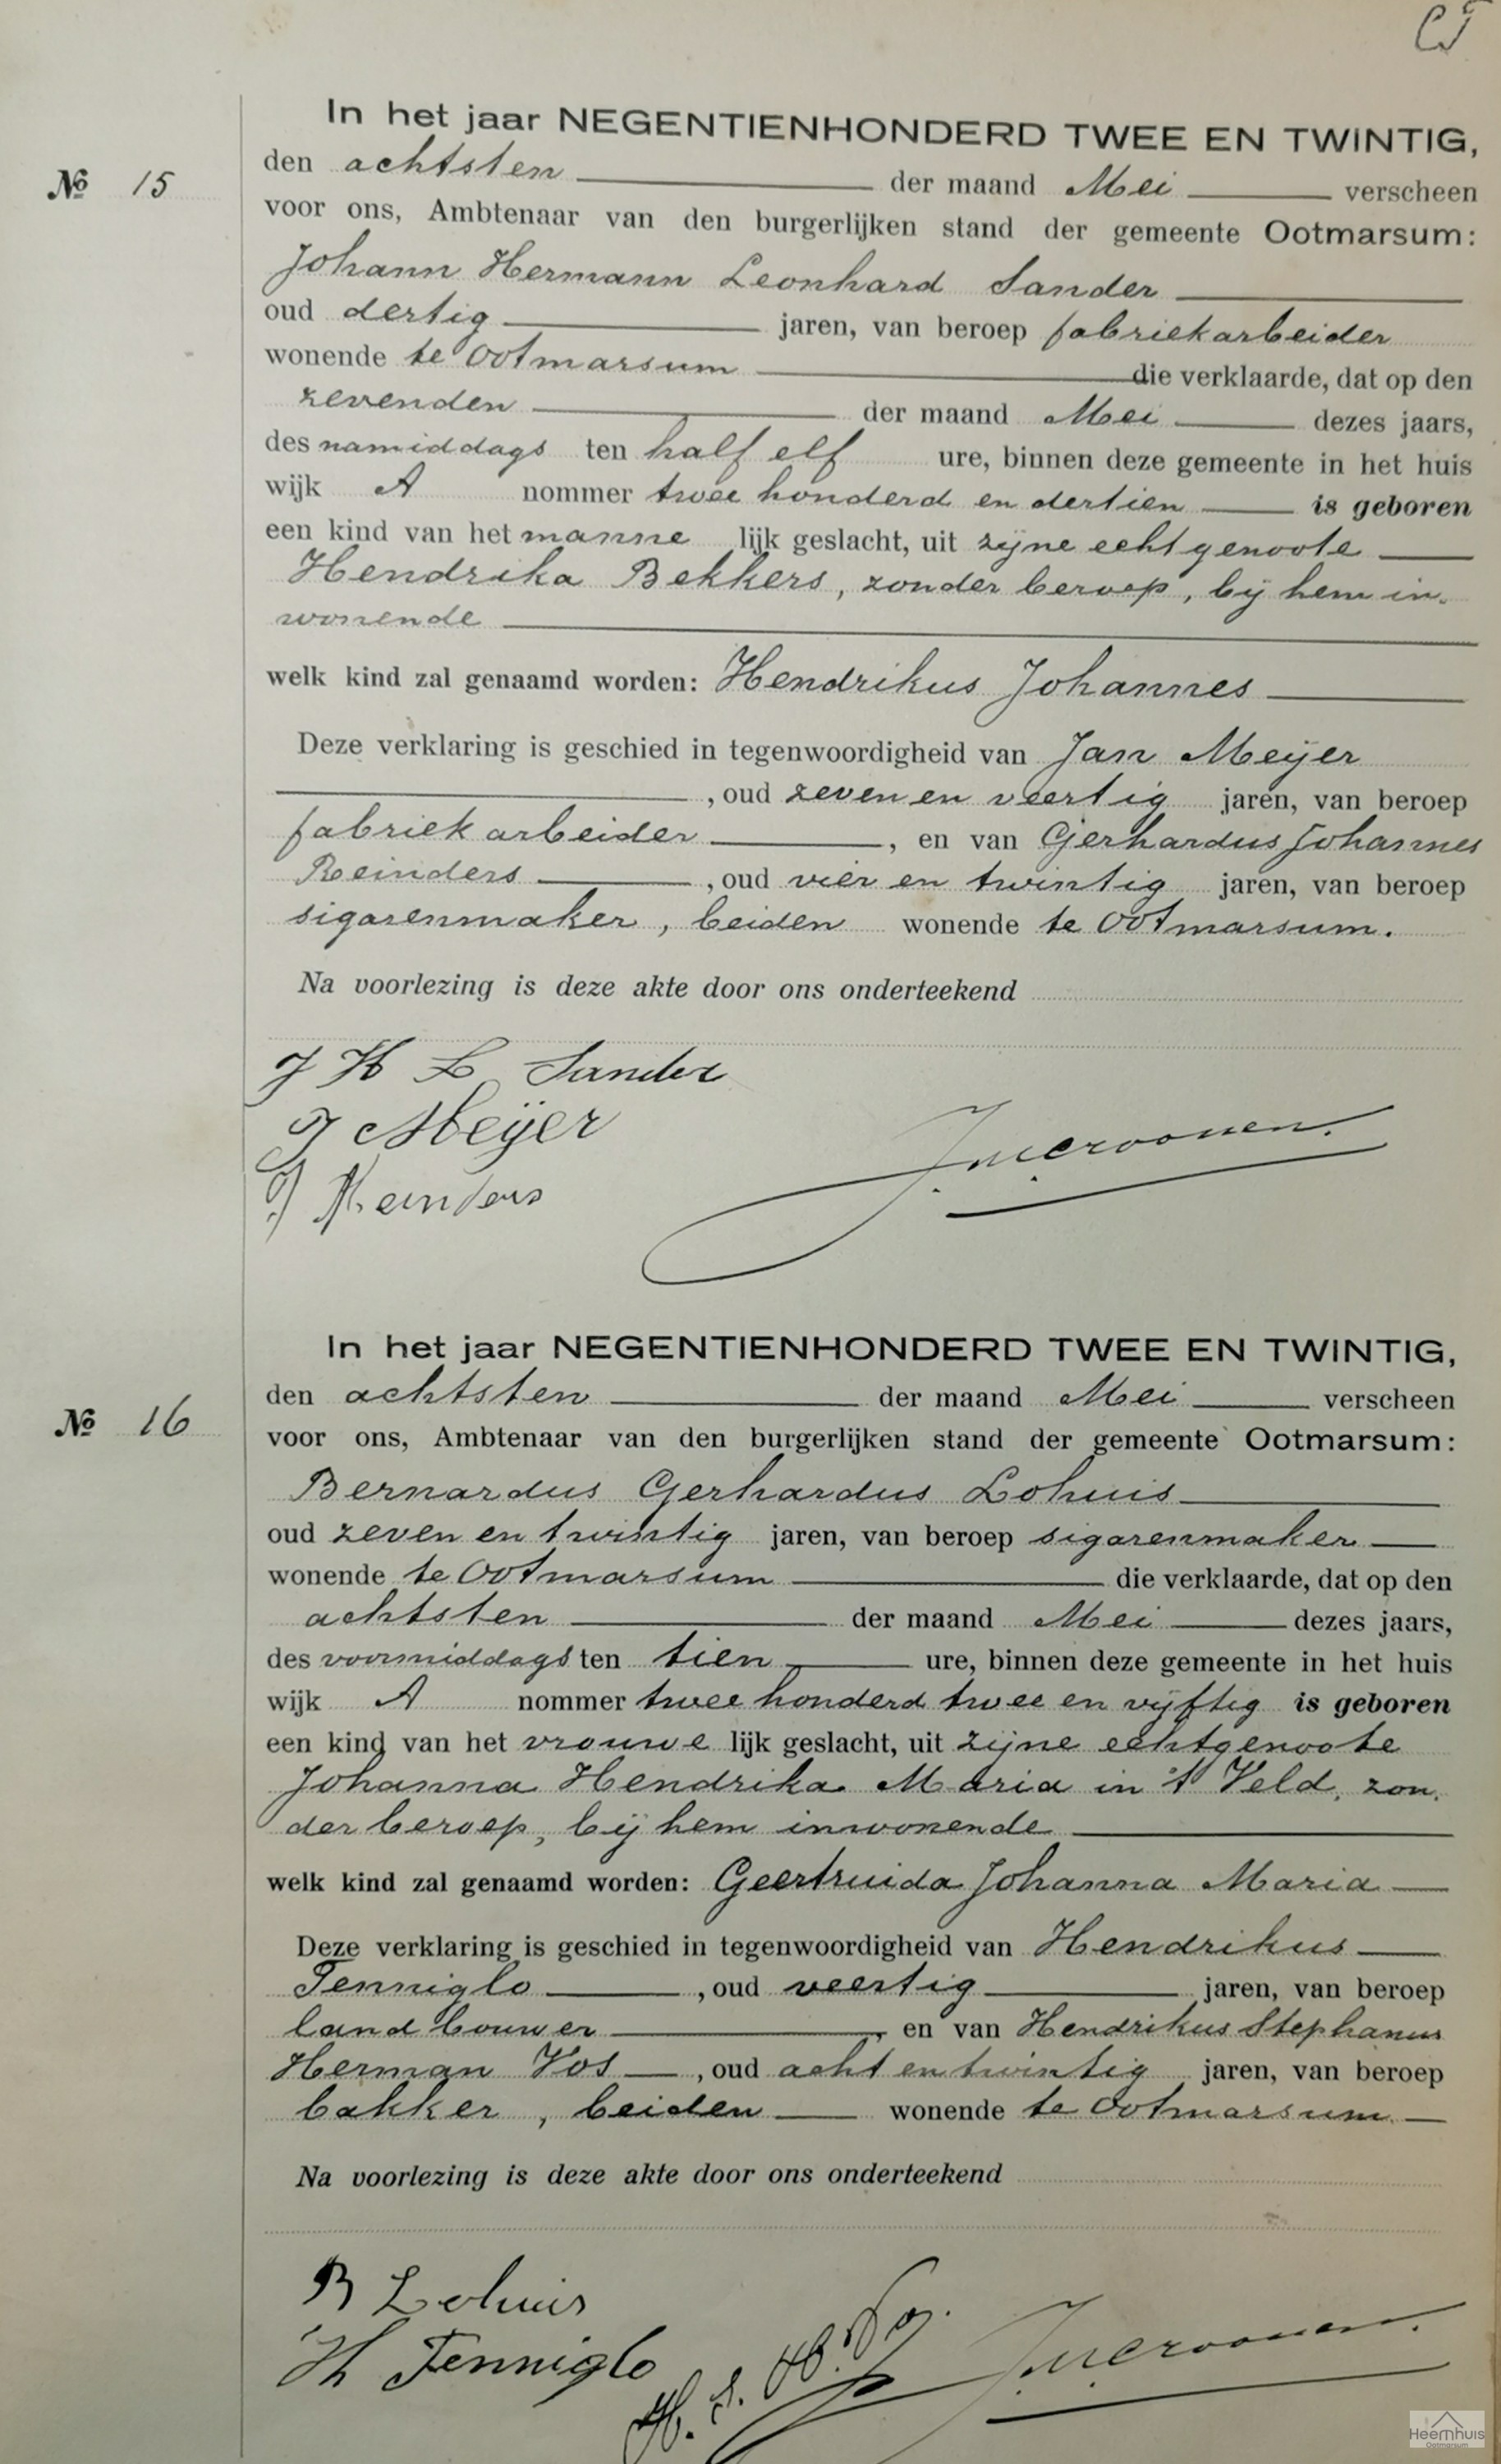 In het jaar NEGENTIENHONDERD TWEE EN TWINTIG,
№ 15
den achtsten der maand Mei verscheen
voor ons, Ambtenaar van den burgerlijken stand der gemeente Ootmarsum:
Johann Hermann Leonhard Sander
oud dertig jaren, van beroep fabriekarbeider
wonende te Ootmarsum die verklaarde, dat op den
zevenden der maand Mei dezes jaars,
des namiddags ten half elf ure, binnen deze gemeente in het huis
wijk A nommer twee honderd en dertien is geboren
een kind van het manne lijk geslacht, uit zijne echtgenoote
Hendrika Bekkers, zonder beroep, bij hem in-
wonende
welk kind zal genaamd worden: Hendrikus Johannes
Deze verklaring is geschied in tegenwoordigheid van Jan Meijer
, oud zeven en veertig jaren, van beroep
fabriekarbeider, en van Gerhardus Johannes
Reinders, oud vier en twintig jaren, van beroep
sigarenmaker, beiden wonende te Ootmarsum.
Na voorlezing is deze akte door ons onderteekend
J H L Sander
J Meijer
Reinders
In het jaar NEGENTIENHONDERD TWEE EN TWINTIG,
№ 16
den achtsten der maand Mei verscheen
voor ons, Ambtenaar van den burgerlijken stand der gemeente Ootmarsum:
Bernardus Gerhardus Lohuis
oud zeven en twintig jaren, van beroep sigarenmaker
wonende te Ootmarsum die verklaarde, dat op den
achtsten der maand Mei dezes jaars,
des voormiddags ten tien ure, binnen deze gemeente in het huis
wijk A nommer twee honderd twee en vijftig is geboren
een kind van het vrouwe lijk geslacht, uit zijne echtgenoote
Johanna Hendrika Maria in 't Veld, zon-
der beroep, bij hem inwonende
welk kind zal genaamd worden: Geertruida Johanna Maria
Deze verklaring is geschied in tegenwoordigheid van Hendrikus
Tenniglo, oud veertig jaren, van beroep
landbouwer, en van Hendrikus Stephanus
Herman Vos, oud acht en twintig jaren, van beroep
bakker, beiden wonende te Ootmarsum.
Na voorlezing is deze akte door ons onderteekend
B Lohuis
H Tenniglo
H. S. H. Vos.
Heemhuis
Ootmarsum